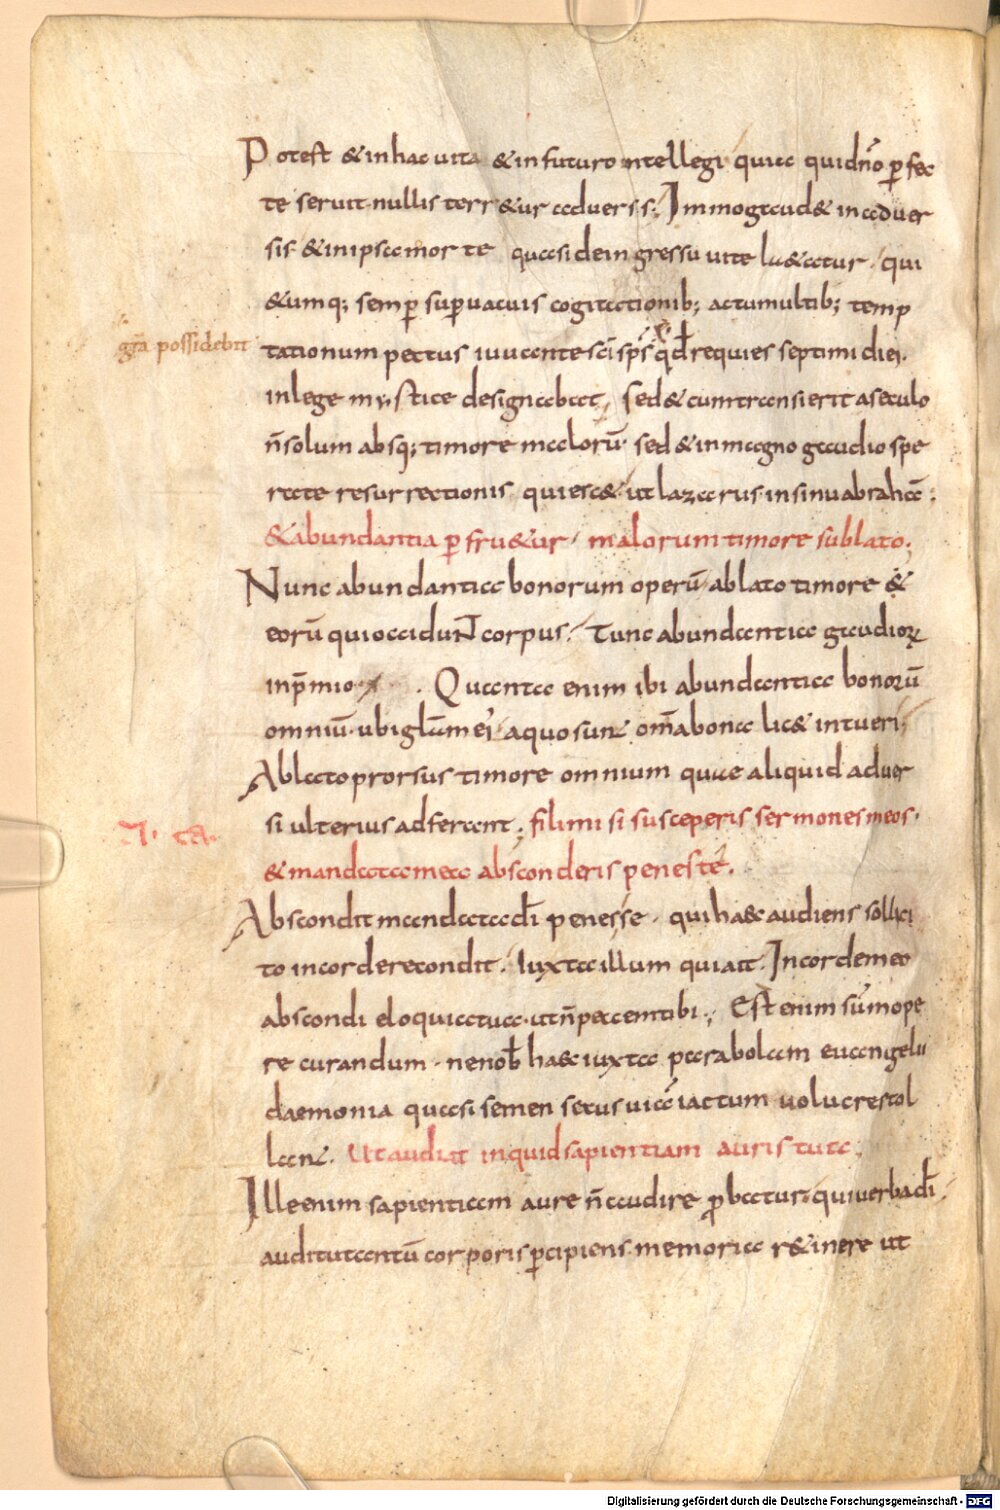 Potest & inhac uita & infuturo intellegi quia quidño ꝑfec
te seruit nullis terr&ur aduersis; Immo gaud& inaduer
sis & inipsa morte quasi deingressu uite læ&atur. qui
&umq; semꝑ suꝑuacuis cogitationib; actumultib; temp
gr̄a possidebit
tationum pectus iuuante sc̄i sp̄s qđ requies septimi diei.
inlege mystice designabat, Sed & cum transierit aseculo
n̄ solum absq; timore malorū. sed & inmagno gaudio spe
rate resurrectionis quiesc& ut lazarus insinu abrahae;
& abundantia ꝑfru&ur. malorum timore sublato;
Nunc abundantia bonorum operū ablato timore &
eorū qui occiduNt corpus. Tunc abundantia gaudioꝝ
inp̄mio. Quanta enim ibi abundantia bonorū
omniū. ubi gl̄am ei aquo sunt om̄a bona lic& intueri.
Ablato prorsus timore omnium quae aliquid aduer
si ulterius adferant; fili mi si susceperis sermones meos.
7. ca.
& mandata mea absconderis penes te.
Abscondit mandata dī penes se. qui haec audiens sollici
to incorde recondit. Iuxta illum qui ait. Incorde meo
abscondi eloquia tua. ut n̄ peccem tibi; Est enim sūmope
re curandum. ne nob̄ haec iuxta parabolam euangelii
daemonia quasi semen secus uiā iactum uolucres tol
lant. Ut audiat inquid sapientiam auris tua;
Ille enim sapientiam aure n̄ audire ꝓbatur. qui uerba dī.
auditu tantū corporis ꝑcipiens memoria r&inere ut
Digitalisierung gefördert durch die Deutsche Forschungsgemeinschaft - DFG